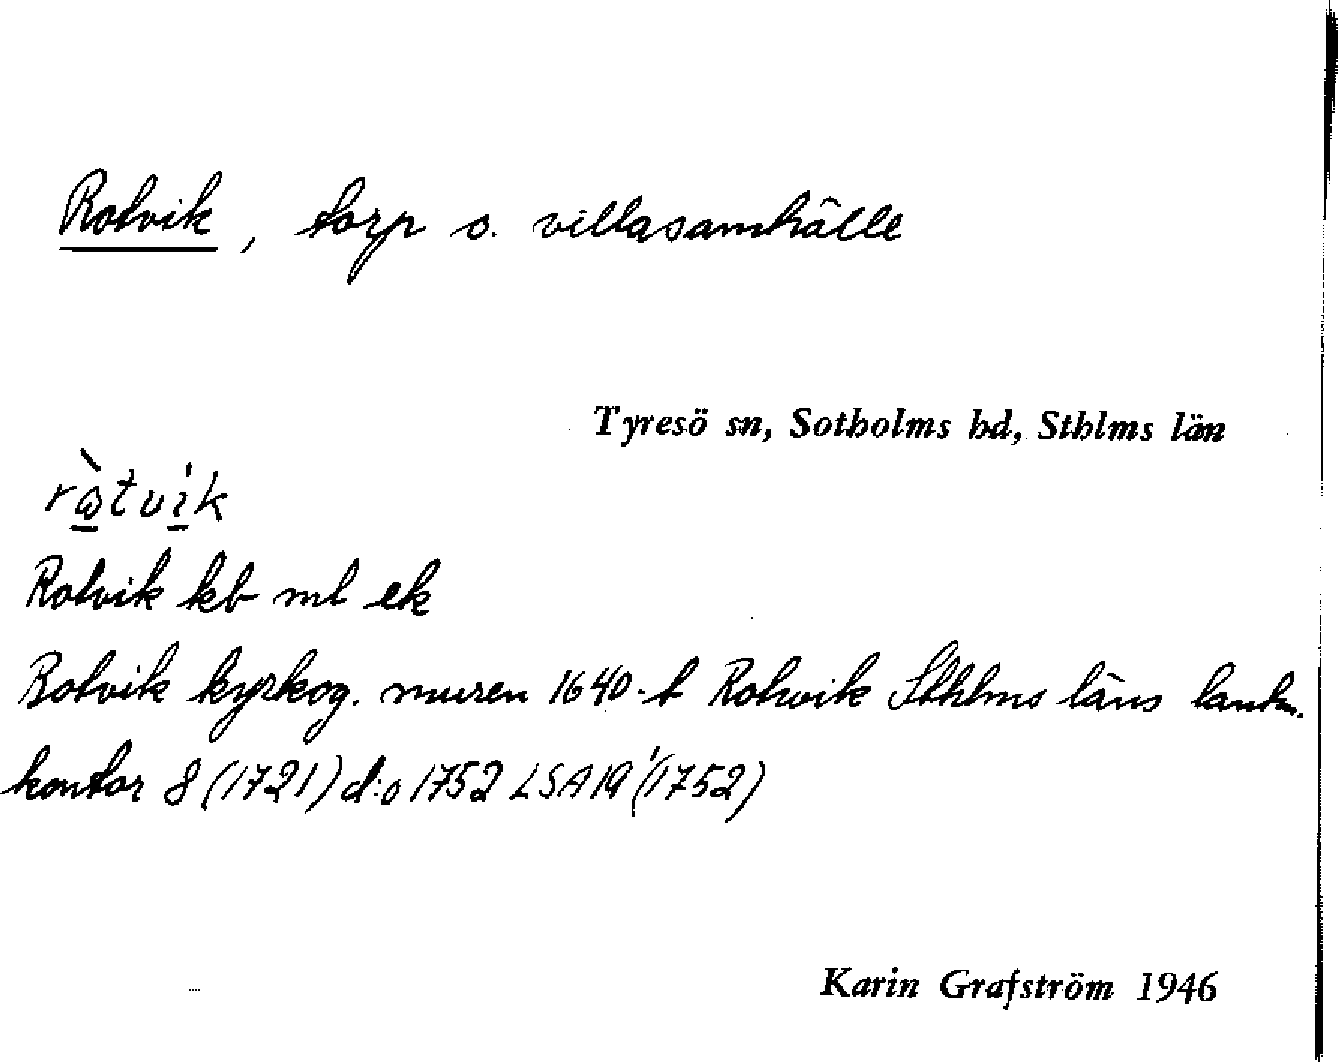 Rotvik, torp o. villasamhälle
Tyresö sn, Sotholms hd, Sthlms län
Rotvik kb ml ek
Botvik kyrkog. muren 1640-t Rotwik Sthlms läns lantm.
kontor 8 (1721) d:o 1752 LSA 19 (1752)
Karin Grafström 1946